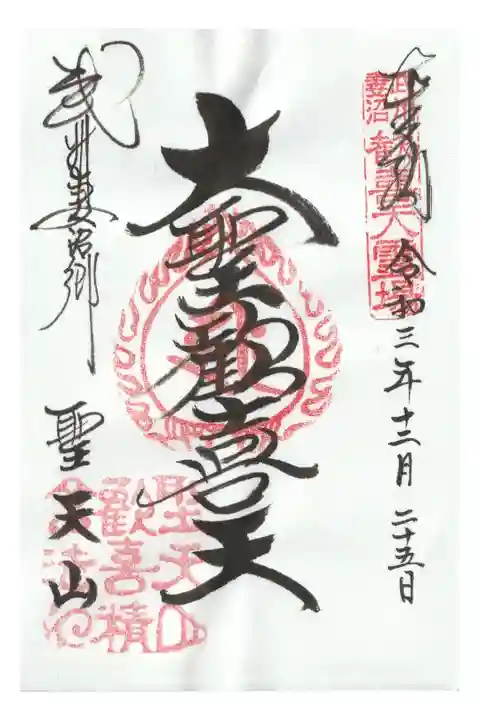 奉拝 令和三年十二月二十五日
武州妻沼 歓喜天霊場
大聖歓喜天
武州妻沼郷
聖天山
聖天山
歓喜積